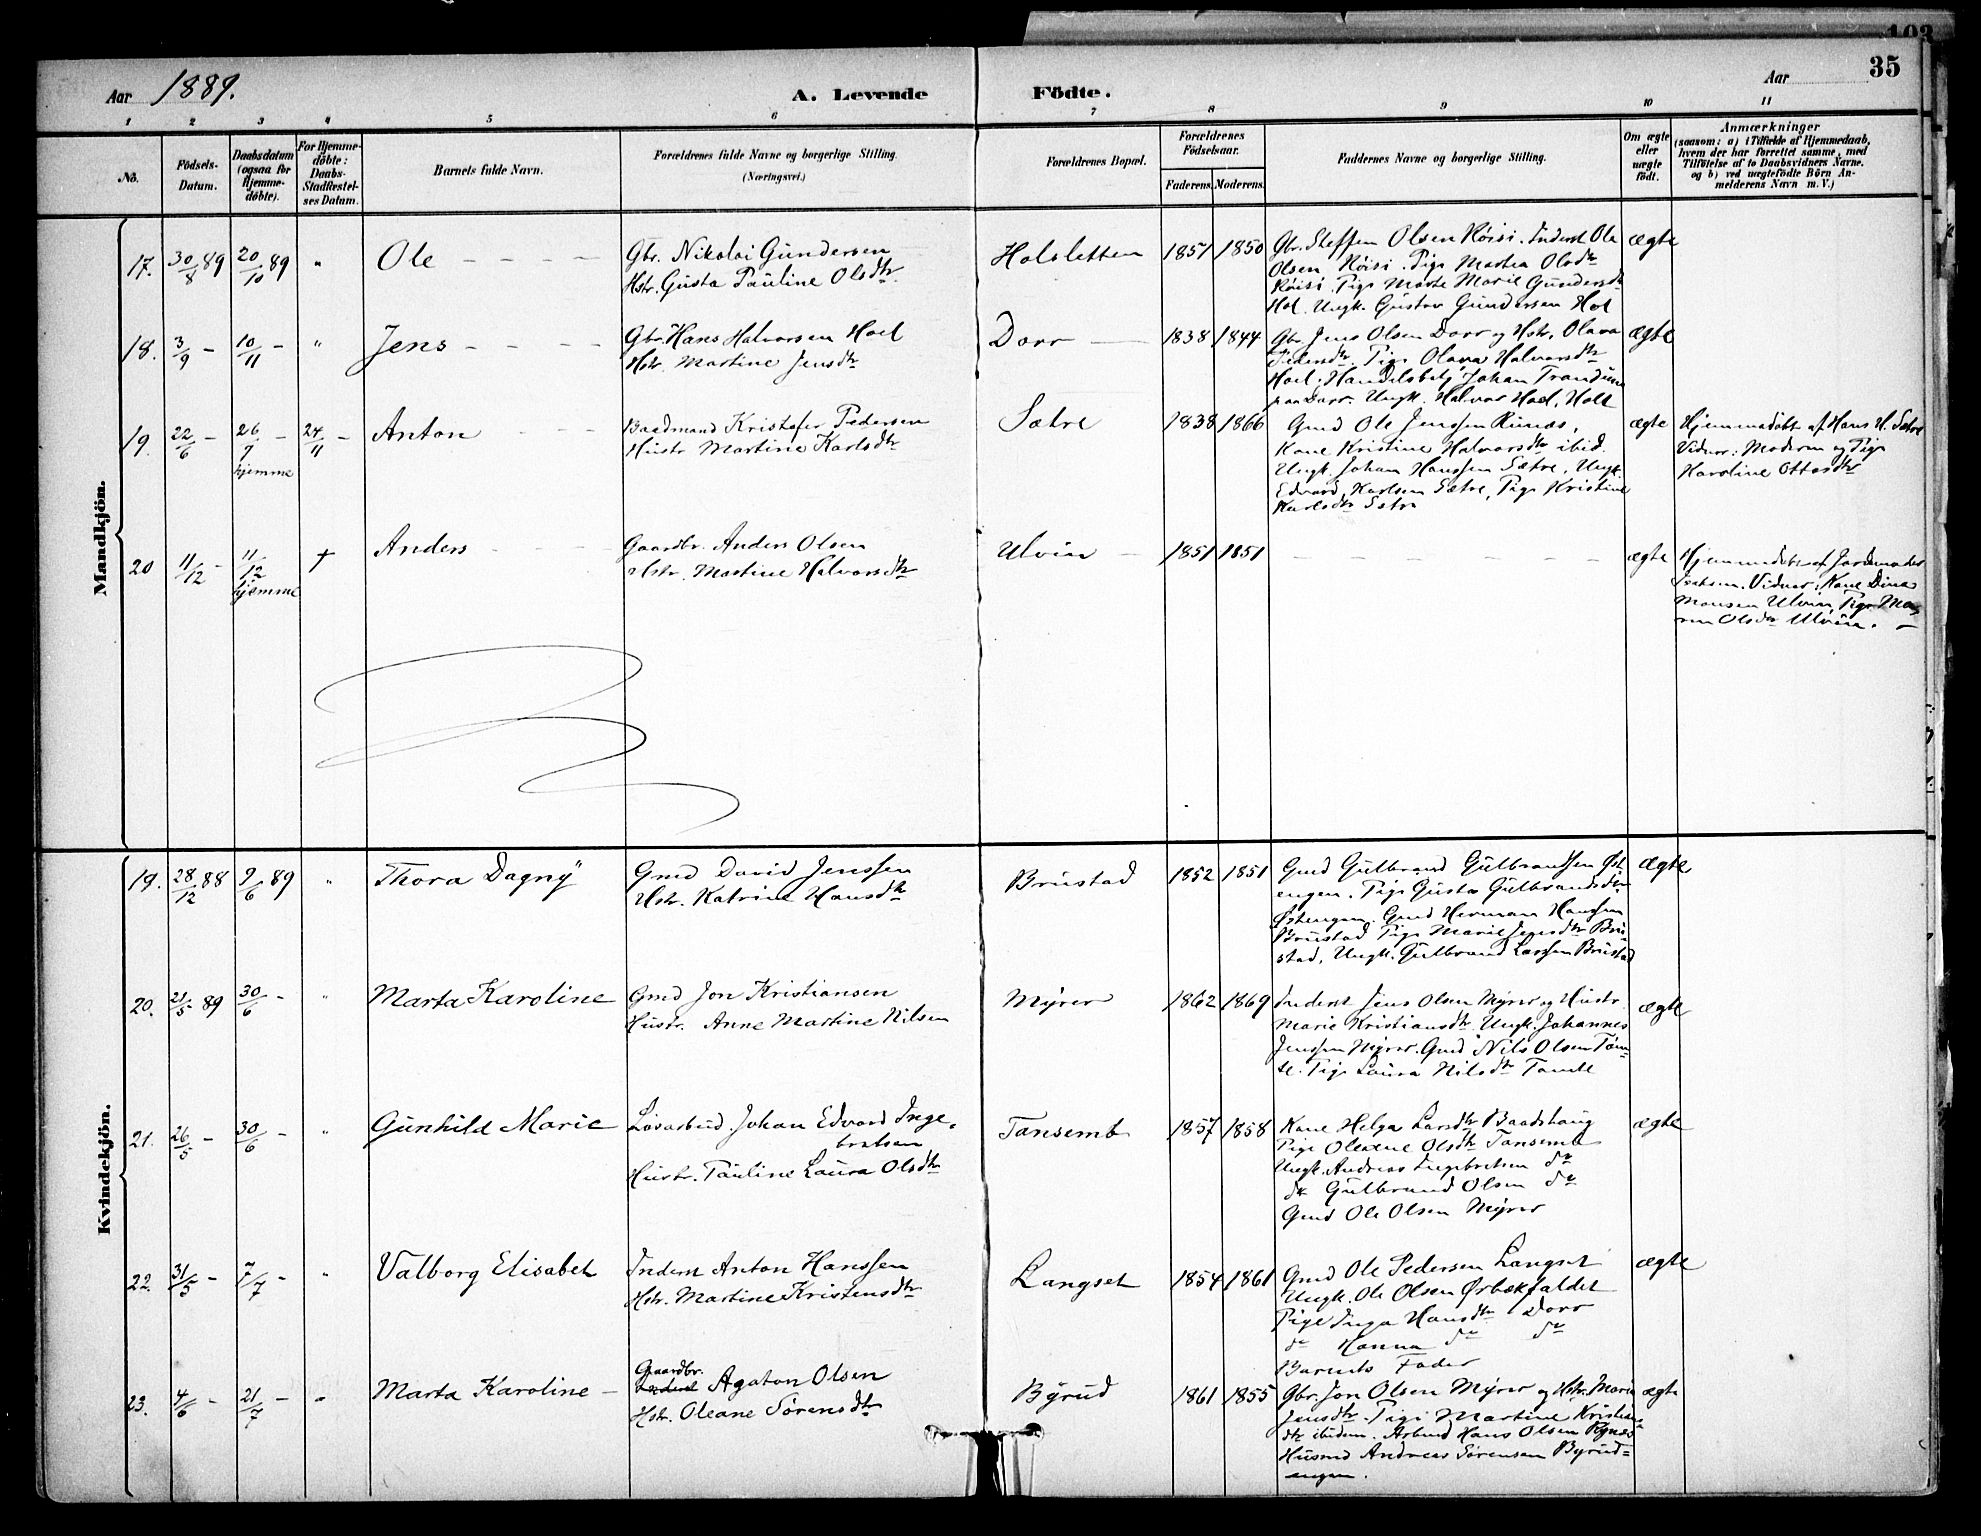 103
35
Aar 1889.
A. Levende Födte.
Aar
1 2 3 4 5 6 7 8 9 10 11
No.
Födsels-Datum.
Daabsdatum (ogsaa for Hjemme-döbte).
For Hjemme-döbte: Daabs-Stadfæstel-ses Datum.
Barnets fulde Navn.
Forældrenes fulde Navne og borgerlige Stilling.
(Næringsvei.)
Forældrenes Bopæl.
Forældrenes Födselsaar.
Faderens. Moderens.
Faddernes Navne og borgerlige Stilling.
Om ægte eller uægte födt.
Anmærkninger
(saasom: a) i Tilfælde af Hjemmedaab,
hvem der har forrettet samme, med
Tilföielse af to Daabsvidners Navne,
og b) ved uægtefödte Börn An-
melderens Navn m. V.)
Mandkjön.
17. 30/8 89 20/10 89 " Ole
Gbr. Nikolai Gundersen
Hstr. Gusta Pauline Olsdtr.
Holsletten 1851 1850
Gbr. Steffen Olsen Röisi. Inderst Ole
Olsen Röisi. Pige Martea Olsdtr
Röisi. Pige Marte Marie Gundersdtr
Hol. Ungk. Gustav Gundersen Hol
ægte
18. 3/9 - 10/11 - " Jens
Gbr. Hans Halvorsen Hoel
Hstr. Martine Jensdtr
Dorr 1838 1844
Gbr Jens Olsen Dorr og Hstr. Olava
Pedersdtr. Pige Olava Halvorsdtr
Hoel, Handelsbetj. Johan Trandum
paa Dorr. Ungk. Halvor Hoel, Holt
ægte
19. 22/6 - 26/7 - hjemme 24/11 - Anton
Baadmand Kristofer Pedersen
Hustr Martine Karlsdtr
Sætre 1838 1866
Gmd Ole Jenssen Runæs,
Kone Kristine Halvorsdtr ibid.
Ungk. Johan Hanssen Sætre, Ungk.
Edvard Karlsen Sætre, Pige Kristine
Karlsdtr Sætre
ægte
Hjemmedöbt af Hans H. Sætre
Vidner: Moderen og Pige
Karoline Ottersdtr
20 11/12 - 11/12 hjemme † Anders
Gaardbr. Anders Olsen
Hstr. Martine Halvorsdtr
Ulvin 1851 1851
ægte
Hjemmedöbt af Jordemoder
Vidner: Kone Dina
Monsen Ulvin, Pige Ma-
ren Olsdtr Ulvin.
Kvindekjön.
19. 28/12 88 9/6 89 " Thora Dagny
Gmd David Jenssen
Hstr. Katrine Hansdtr
Brustad 1852 1851
Gmd Gulbrand Gulbrandsen Öst-
engen. Pige Gusta Gulbrandsdtr
Östengen. Gmd Herman Hanssen
Brustad Pige Marie Jensdtr Bru-
stad, Ungk. Gulbrand Larssen Brustad
ægte
20. 21/5 89 30/6 - " Marta Karoline
Gmd Jon Kristiansen
Hustr. Anne Martine Nilsen
Myrer 1862 1869
Inderst Jens Olsen Myrer og Hustr.
Marie Kristiansdtr. Ungk. Johannes
Jenssen Myrer. Gmd Nils Olsen Tom-
te. Pige Laura Nilsdtr Tomte
ægte
21. 26/5 - 30/6 - " Gunhild Marie
Losarbeid. Johan Edvard Inge-
bretsen
Hustr. Pauline Laura Olsdtr
Tansemb 1857 1858
Kone Helga Larsdtr Baadshaug
Pige Oleane Olsdtr Tansemb
Ungk. Andreas Ingebretsen do
do Gulbrand Olsen do
Gmd Ole Olsen Myrer
ægte
22. 31/5 - 7/7 - " Valborg Elisabet
Inderst Anton Hanssen
Hstr. Martine Kristensdtr
Langset 1854 1861
Gmd Ole Pedersen Langset
Ungk. Ole Olsen Örbækfaldet
Pige Inga Hansdtr Dorr
do Hanna do do
Barnets Fader
ægte
23. 4/6 - 21/7 - " Marta Karoline
Gaardbr.
Inderst Agaton Olsen
Hstr. Oleane Sörensdtr
Byrud 1861 1855
Gbr. Jon Olsen Myrer og Hstr. Marie
Jensdtr. Pige Martine Kristians-
dtr ibidem. Arbmd Hans Olsen Rynæs
Husmd Andreas Sörensen Byrud-
engen.
ægte